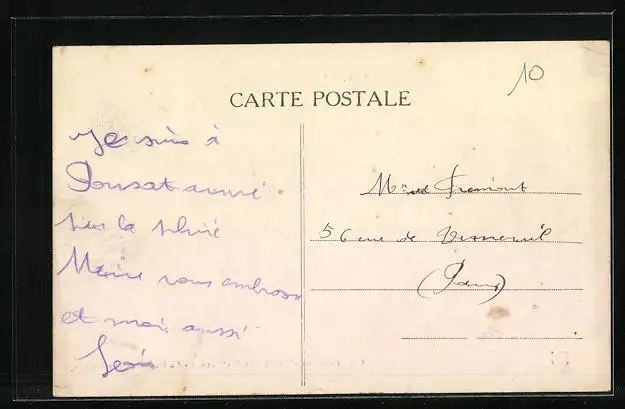 CARTE POSTALE
10
Je suis à
Ponsat arrivé
par la pluie
Marie vous embrasse
et moi aussi
Jean
Fremont
56 rue de Verneuil
(Paris)